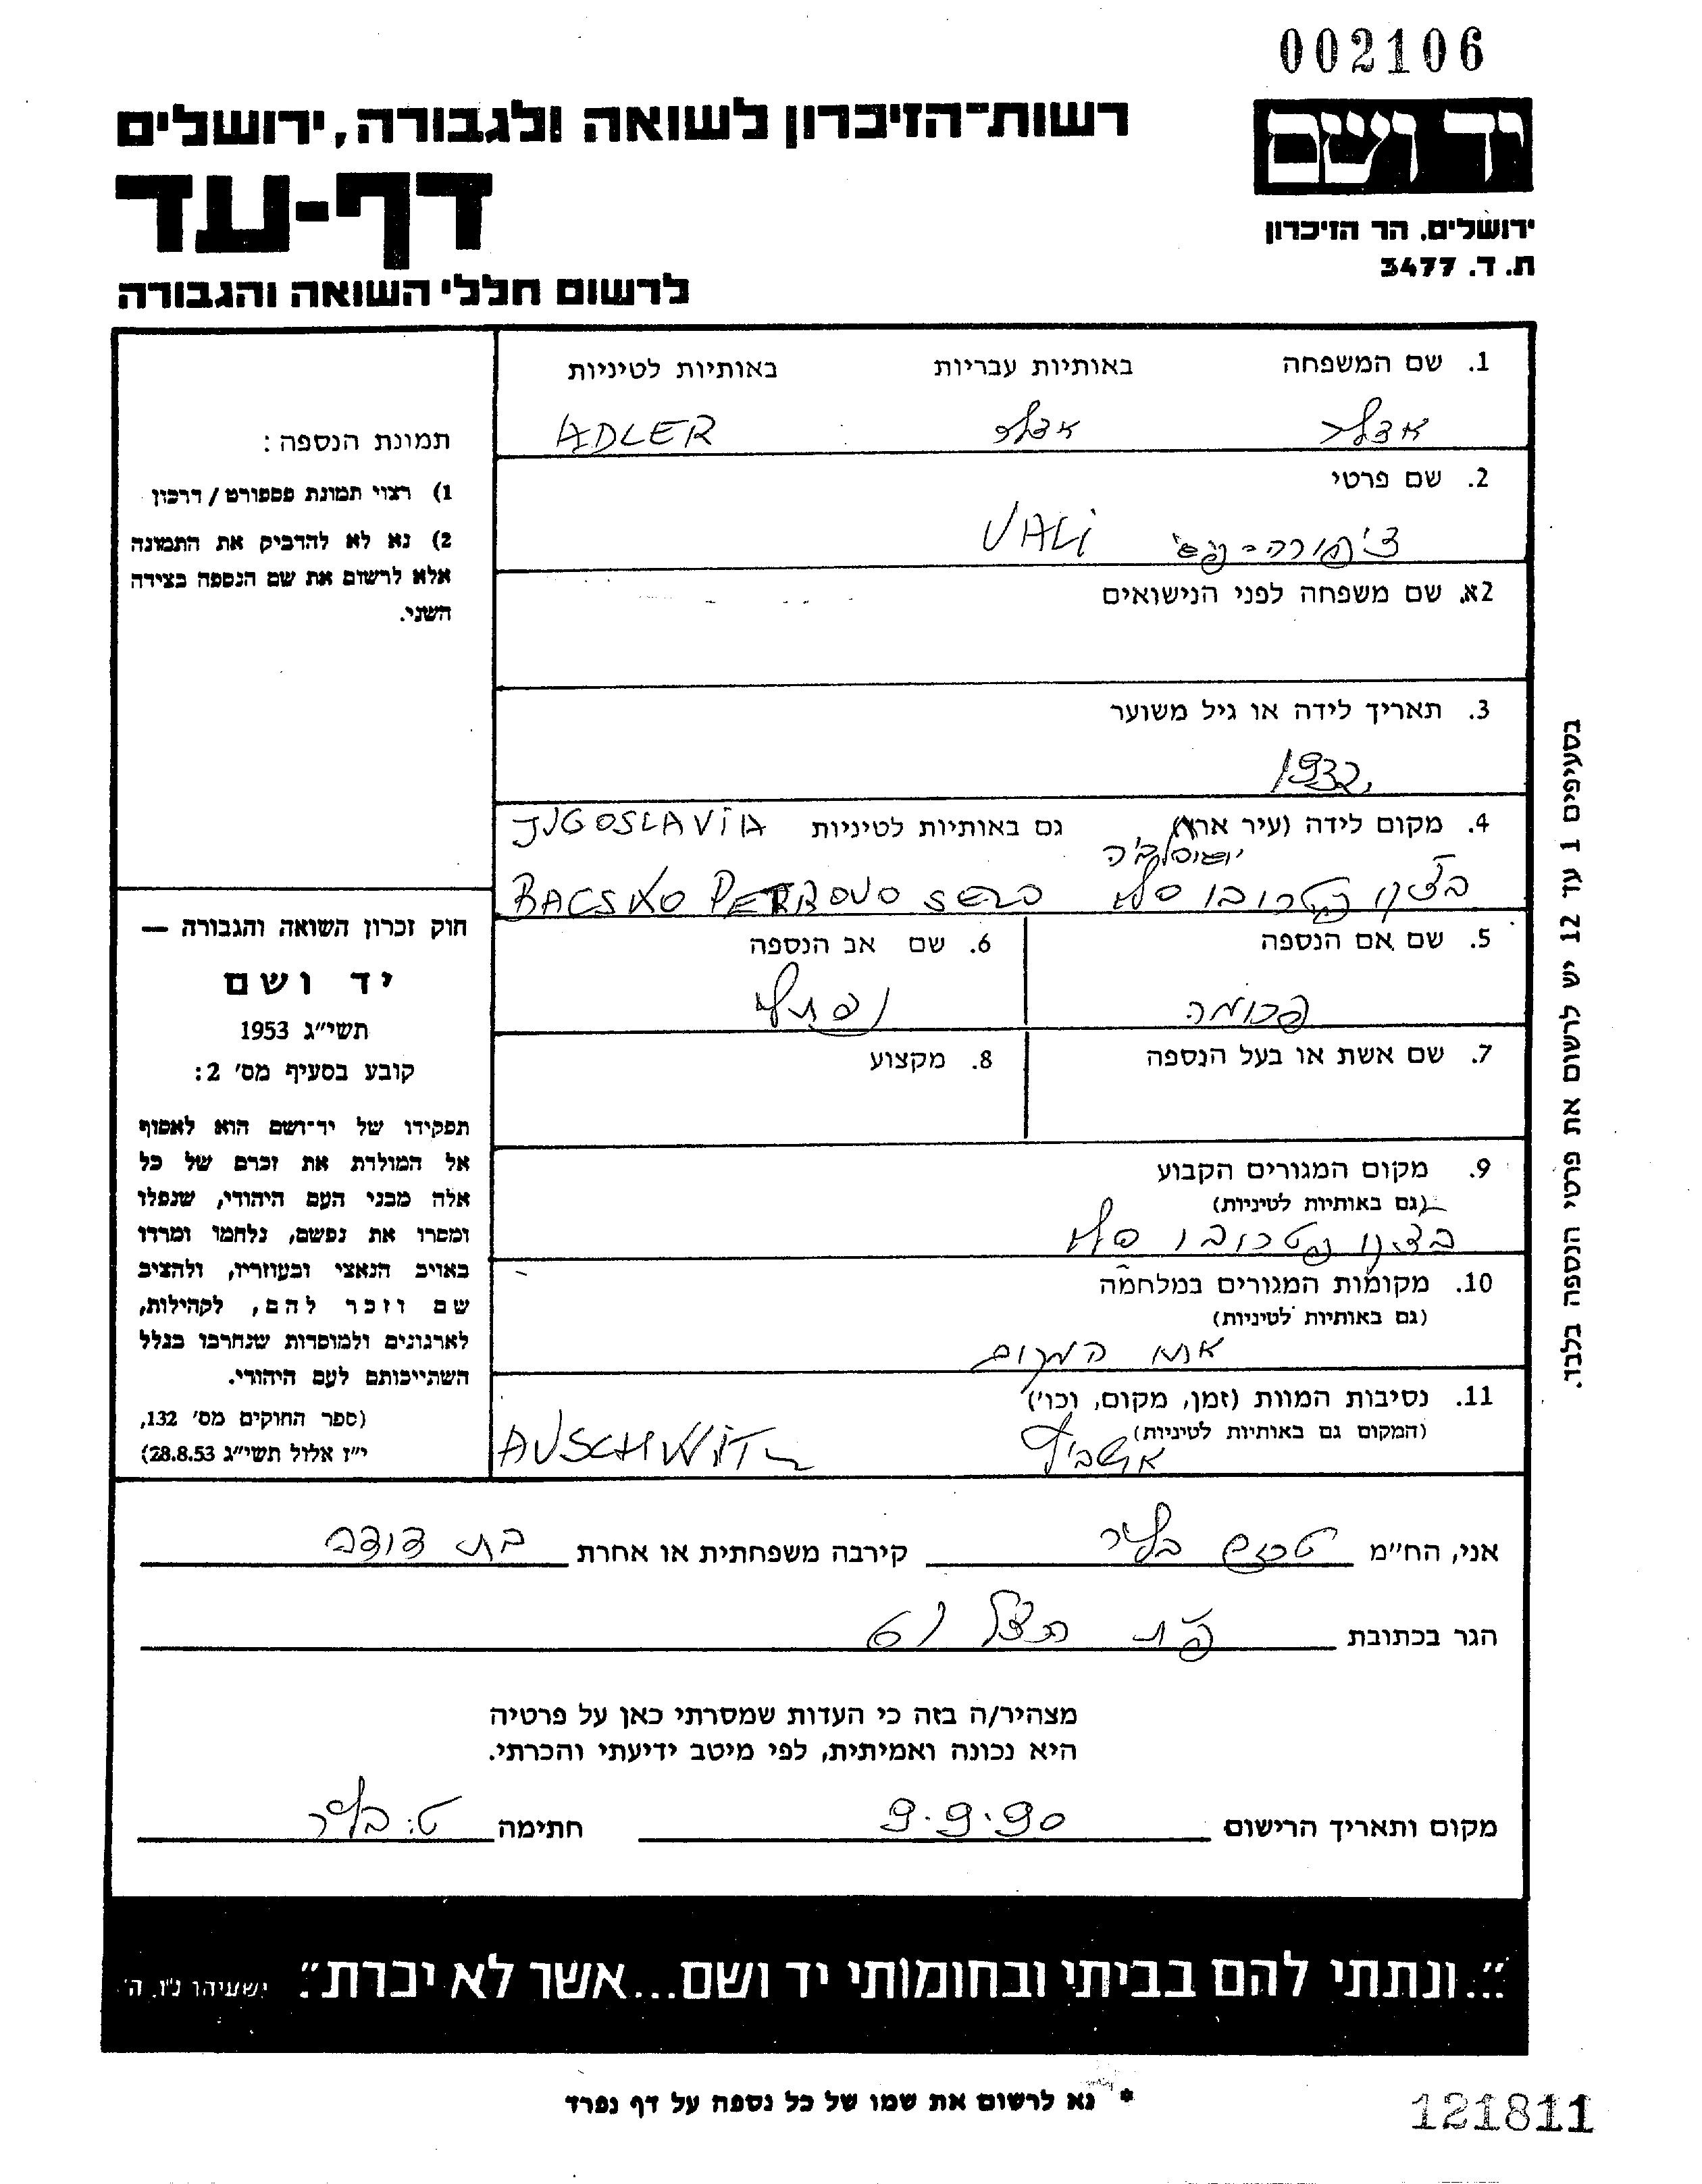 002106
יד ושם
ירושלים. הר הזיכרון
ת. ד. 3477
רשות-הזיכרון לשואה ולגבורה, ירושלים
דף-עד
לרשום חללי השואה והגבורה
1. שם המשפחה באותיות עבריות באותיות לטיניות
אדלר אדלר ADLER
2. שם פרטי
ציפורה - VALI
2א. שם משפחה לפני הנישואים
3. תאריך לידה או גיל משוער
1932
4. מקום לידה (עיר ארץ) גם באותיות לטיניות JUGOSLAVIA
יוגוסלביה
בצקו פטרובו סלו BACSKO PETROVO
5. שם אם הנספה
6. שם אב הנספה
נפתלי
7. שם אשת או בעל הנספה
8. מקצוע
9. מקום המגורים הקבוע
(גם באותיות לטיניות)
בצקו פטרובו סלו
10. מקומות המגורים במלחמה
(גם באותיות לטיניות)
אותו המקום
11. נסיבות המוות (זמן, מקום, וכו')
(המקום גם באותיות לטיניות)
אושביץ AUSCHWITZ
תמונת הנספה:
1) רצוי תמונת פספורט / דרכון
2) נא לא להדביק את התמונה
אלא לרשום את שם הנספה בצידה
השני.
חוק זכרון השואה והגבורה —
יד ושם
תשי״ג 1953
קובע בסעיף מס׳ 2:
תפקידו של יד-ושם הוא לאסוף
אל המולדת את זכרם של כל
אלה מבני העם היהודי, שנפלו
ומסרו את נפשם, נלחמו ומרדו
באויב הנאצי ובעוזריו, ולהציב
שם וזכר להם, לקהילות,
לארגונים ולמוסדות שנחרבו בגלל
השתייכותם לעם היהודי.
(ספר החוקים מס׳ 132,
י״ז אלול תשי״ג 28.8.53)
בסעיפים 1 עד 12 יש לרשום את פרטי הנספה בלבד.
אני, הח״מ קירבה משפחתית או אחרת בת דודה
הגר בכתובת פ״ת
מצהיר/ה בזה כי העדות שמסרתי כאן על פרטיה
היא נכונה ואמיתית, לפי מיטב ידיעתי והכרתי.
מקום ותאריך הרישום 9.9.90 חתימה
״...ונתתי להם בביתי ובחומותי יד ושם...אשר לא יכרת״. ישעיהו נ״ו, ה׳
* נא לרשום את שמו של כל נספה על דף נפרד
121811